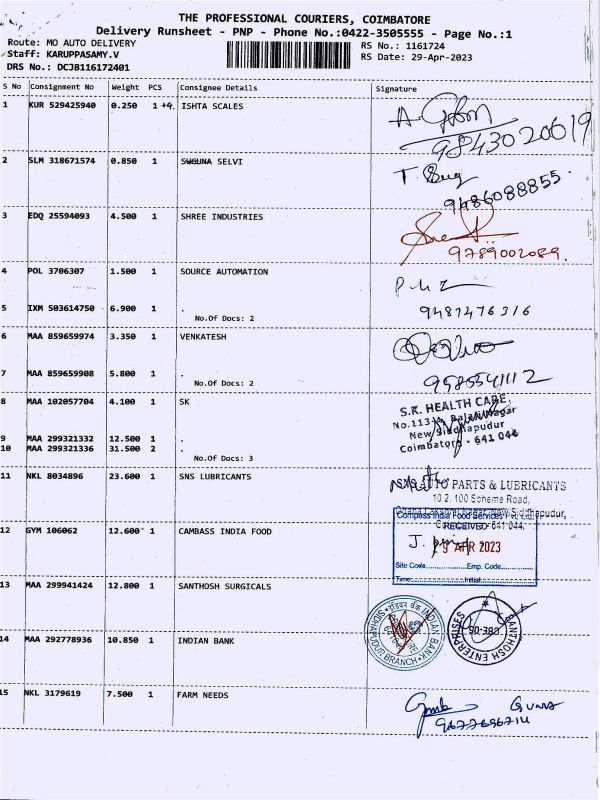 THE PROFESSIONAL COURIERS, COIMBATORE
Delivery Runsheet - PNP - Phone No.:0422-3505555 - Page No.:1
Route: MO AUTO DELIVERY RS No.: 1161724
Staff: KARUPPASAMY.V RS Date: 29-Apr-2023
DRS No.: DCJB116172401
S No Consignment No Weight PCS Consignee Details Signature
1 KUR 529425940 0.250 1 +4. ISHTA SCALES
9843020619
2 SLM 318671574 0.850 1 SWGUNA SELVI T. Sug
9486088855.
3 EDQ 25594093 4.500 1 SHREE INDUSTRIES
9789002089.
4 POL 3706307 1.500 1 SOURCE AUTOMATION
5 IXM 503614750 6.900 1 . 9487476316
No.Of Docs: 2
6 MAA 859659974 3.350 1 VENKATESH
7 MAA 859659908 5.800 1 .
No.Of Docs: 2 9585541112
8 MAA 102057704 4.100 1 SK
S.K. HEALTH CARE,
No.113 Balaji Nagar
New Siddhapudur
Coimbatore - 641 044
9 MAA 299321332 12.500 1 .
10 MAA 299321336 31.500 2
No.Of Docs: 3
11 NKL 8034896 23.600 1 SNS LUBRICANTS
AUTO PARTS & LUBRICANTS
10 2. 100 Scheme Road,
New Siddhapudur,
641 044.
Compass India Food Services Pvt. Ltd.
RECEIVED
12 GYM 106062 12.600 1 CAMBASS INDIA FOOD
J.
29 APR 2023
Site Code Emp. Code
Time Initial
13 MAA 299941424 12.800 1 SANTHOSH SURGICALS
14 MAA 292778936 10.850 1 INDIAN BANK
INDIAN BANK
SIDHAPUDUR BRANCH
SANTHOSH ENTERPRISES
15 NKL 3179619 7.500 1 FARM NEEDS
GUNA
9677696714